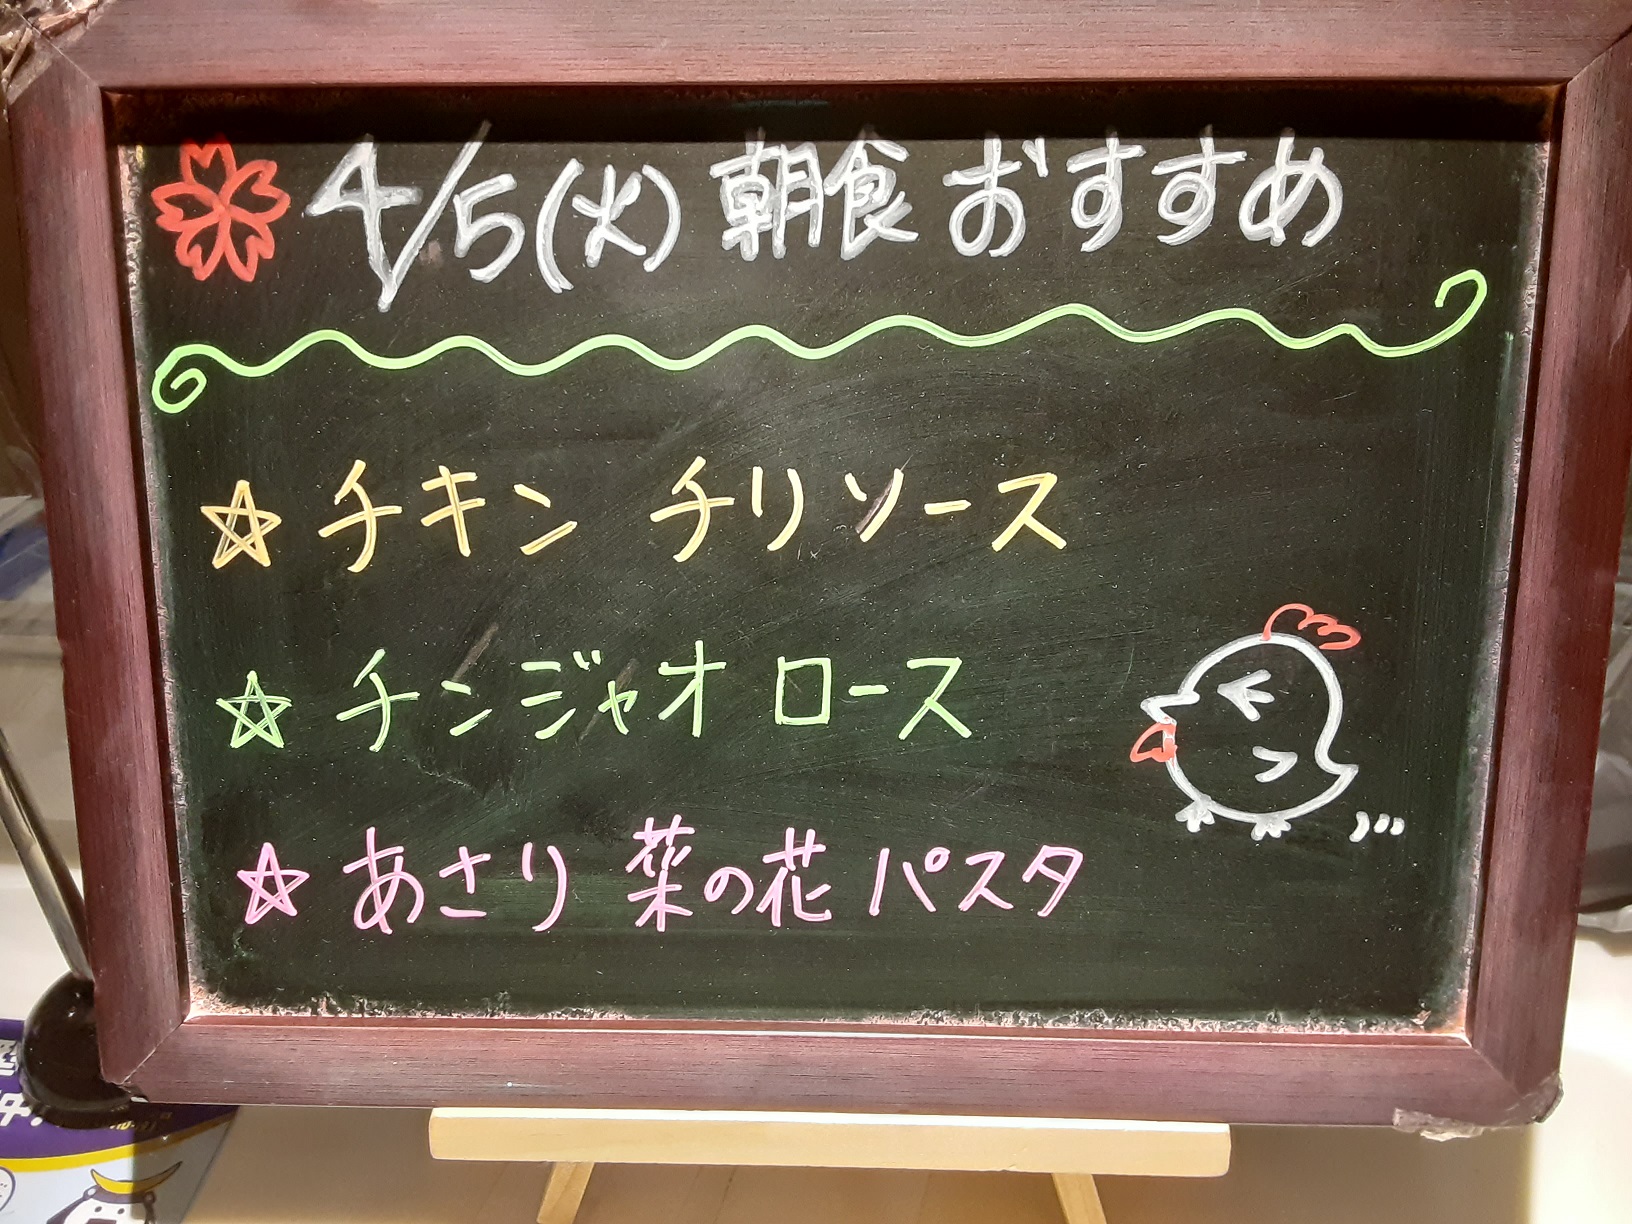 4/5(火) 朝食 おすすめ
☆ チキン チリソース
☆ チンジャオロース
☆ あさり 菜の花 パスタ